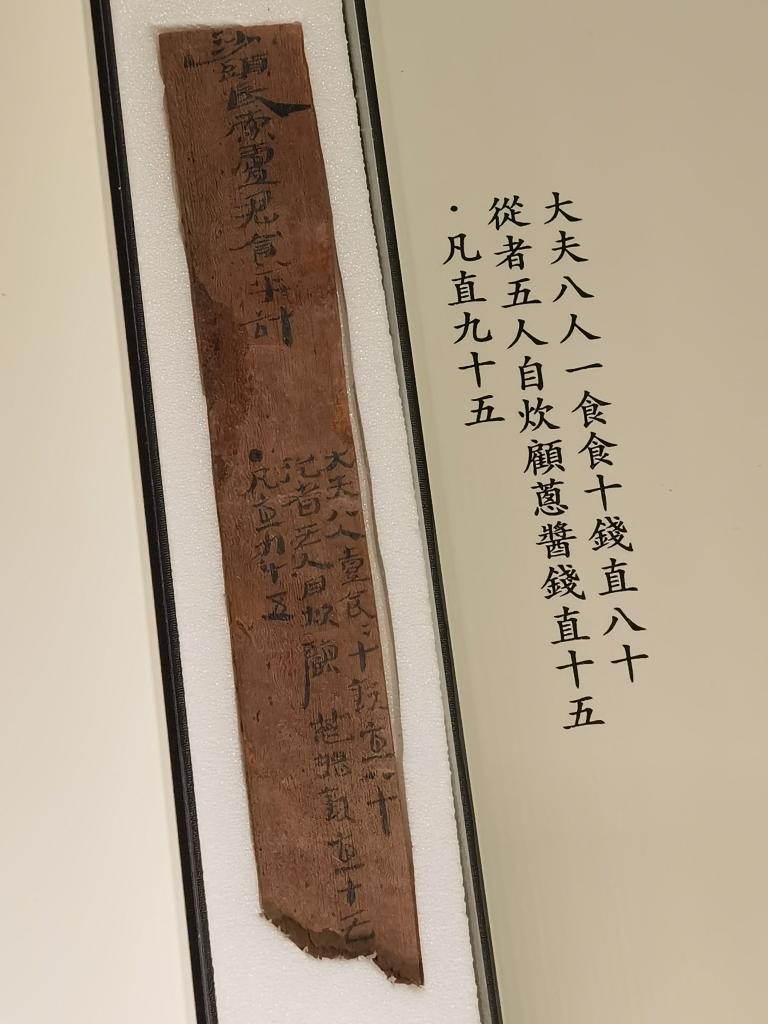 大夫八人一食食十錢直八十
從者五人自炊顧蔥醬錢直十五
·凡直九十五
大夫八人壹食=十錢直八十
從者五人自炊顧蔥醬錢直十五
·凡直九十五
沙頭 食 計